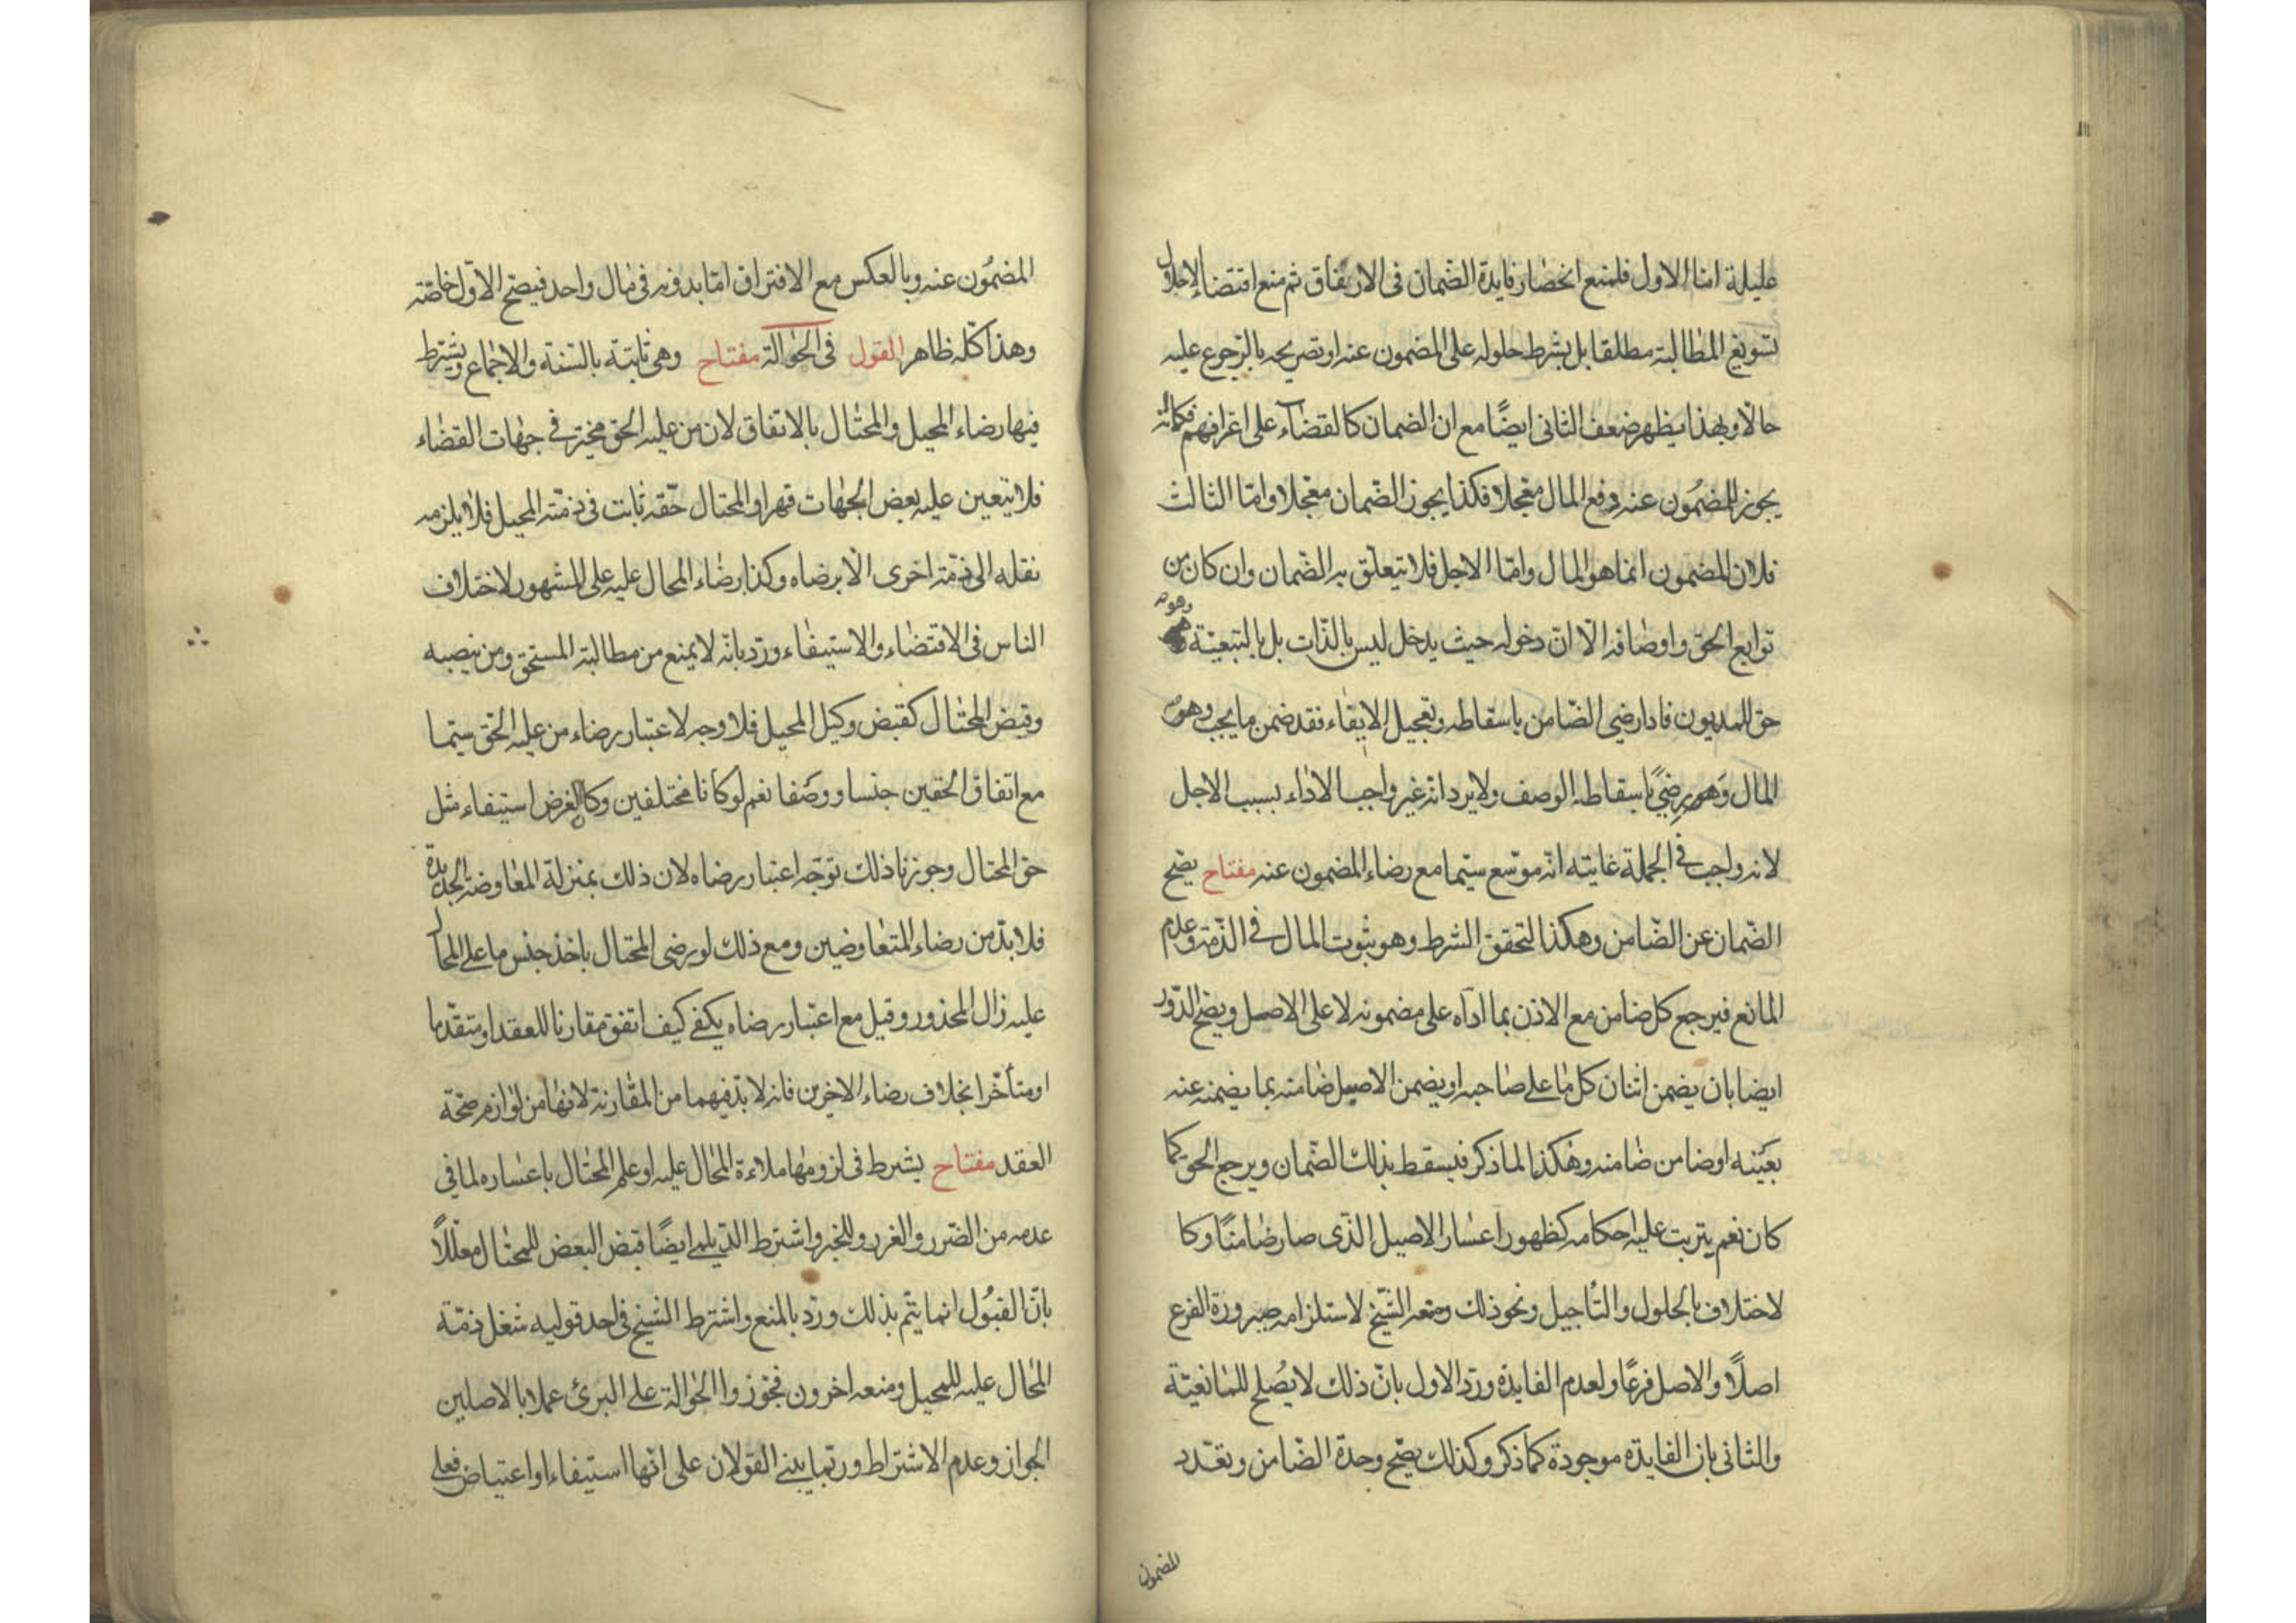 عليلة اما الاول فلمنع انحصار فايدة الضمان فى الارتفاق ثم منع اقتضا الاحلال
تسويغ المطالبة مطلقا بل بشرط حلوله على المضمون عنه او تصريحه بالرجوع عليه
حالا وبهذا يظهر ضعف الثانى ايضًا مع ان الضمان كالقضاء على اعترافهم فكما انه
يجوز للمضمون عنه دفع المال معجلا فكذا يجوز الضمان معجلا واما الثالث
فلان المضمون انما هو المال واما الاجل فلا يتعلق به الضمان وان كان من
توابع الحق واوصافه الا ان دخوله حيث يدخل ليس بالذات بل بالتبعية وهو
حق للمديون فاذا رضى الضامن باسقاطه وتعجيل الايفاء فقد ضمن ما يجب وهو
المال وهو رضي باسقاطه الوصف ولا يرد انه غير واجب الاداء بسبب الاجل
لانه واجب فى الجملة غايته انه موسع سيما مع رضاء المضمون عنه مفتاح يصح
الضمان عن الضامن وهكذا لتحقق الشرط وهو ثبوت المال فى الذمة وعدم
المانع فيرجع كل ضامن مع الاذن بما اداه على مضمونه لا على الاصيل ويصح الدور
ايضا بان يضمن اثنان كل ما على صاحبه او يضمن الاصيل ضامنه بما يضمنه عنه
بعينه او ضامن ضامنه وهكذا لما ذكر فيسقط بذلك الضمان ويرجع الحق كما
كان نعم يترتب عليه احكامه كظهور اعسار الاصيل الذى صار ضامنًا وكا
لاختلاف بالحلول والتأجيل ونحو ذلك ومنعه الشيخ لاستلزامه صيرورة الفرع
اصلاً والاصل فرعًا ولعدم الفايدة ورد الاول بان ذلك لا يصلح للمانعية
والثانى بان الفايدة موجودة كما ذكر وكذلك يصح وحدة الضامن وتعدد
المضمون
المضمون عنه وبالعكس مع الافتراق اما بدونه فى مال واحد فيصح الاول خاصة
وهذا كله ظاهر القول فى الحوالة مفتاح وهى ثابتة بالسنة والاجماع ويشترط
فيها رضاء المحيل والمحتال بالاتفاق لان من عليه الحق مخير فى جهات القضاء
فلا يتعين عليه بعض الجهات قهرا والمحتال حقه ثابت فى ذمة المحيل فلا يلزمه
نقله الى ذمة اخرى الا برضاه وكذا رضاء المحال عليه على المشهور لاختلاف
الناس فى الاقتضاء والاستيفاء ورد بانه لا يمنع من مطالبة المستحق ومن نصبه
وقبض المحتال كقبض وكيل المحيل فلا وجه لاعتبار رضاء من عليه الحق سيما
مع اتفاق الحقين جنسا ووصفا نعم لو كانا مختلفين وكا الغرض استيفاء مثل
حق المحتال وجوزنا ذلك توجه اعتبار رضاه لان ذلك بمنزلة المعاوضة الجديدة
فلا بد من رضاء المتعاوضين ومع ذلك لو رضى المحتال باخذ جنس ما على المحال
عليه زال المحذور وقيل مع اعتبار رضاه يكفى كيف اتفق مقارنا للعقد او متقدما
او متأخرا بخلاف رضاء الاخرين فانه لا بد فيهما من المقارنة لانها من لوازم صحة
العقد مفتاح يشترط فى لزومها ملاءة المحال عليه او علم المحتال باعساره لما فى
عدمه من الضرر والغرر وللخبر واشترط الديلمى ايضًا قبض البعض للمحتال معللاً
بان القبول انما يتم بذلك ورد بالمنع واشترط الشيخ فى احد قوليه شغل ذمة
المحال عليه للمحيل ومنعه اخرون فجوزوا الحوالة على البرئ عملا بالاصلين
الجواز وعدم الاشتراط وربما يبنى القولان على انها استيفاء او اعتياض فعلى